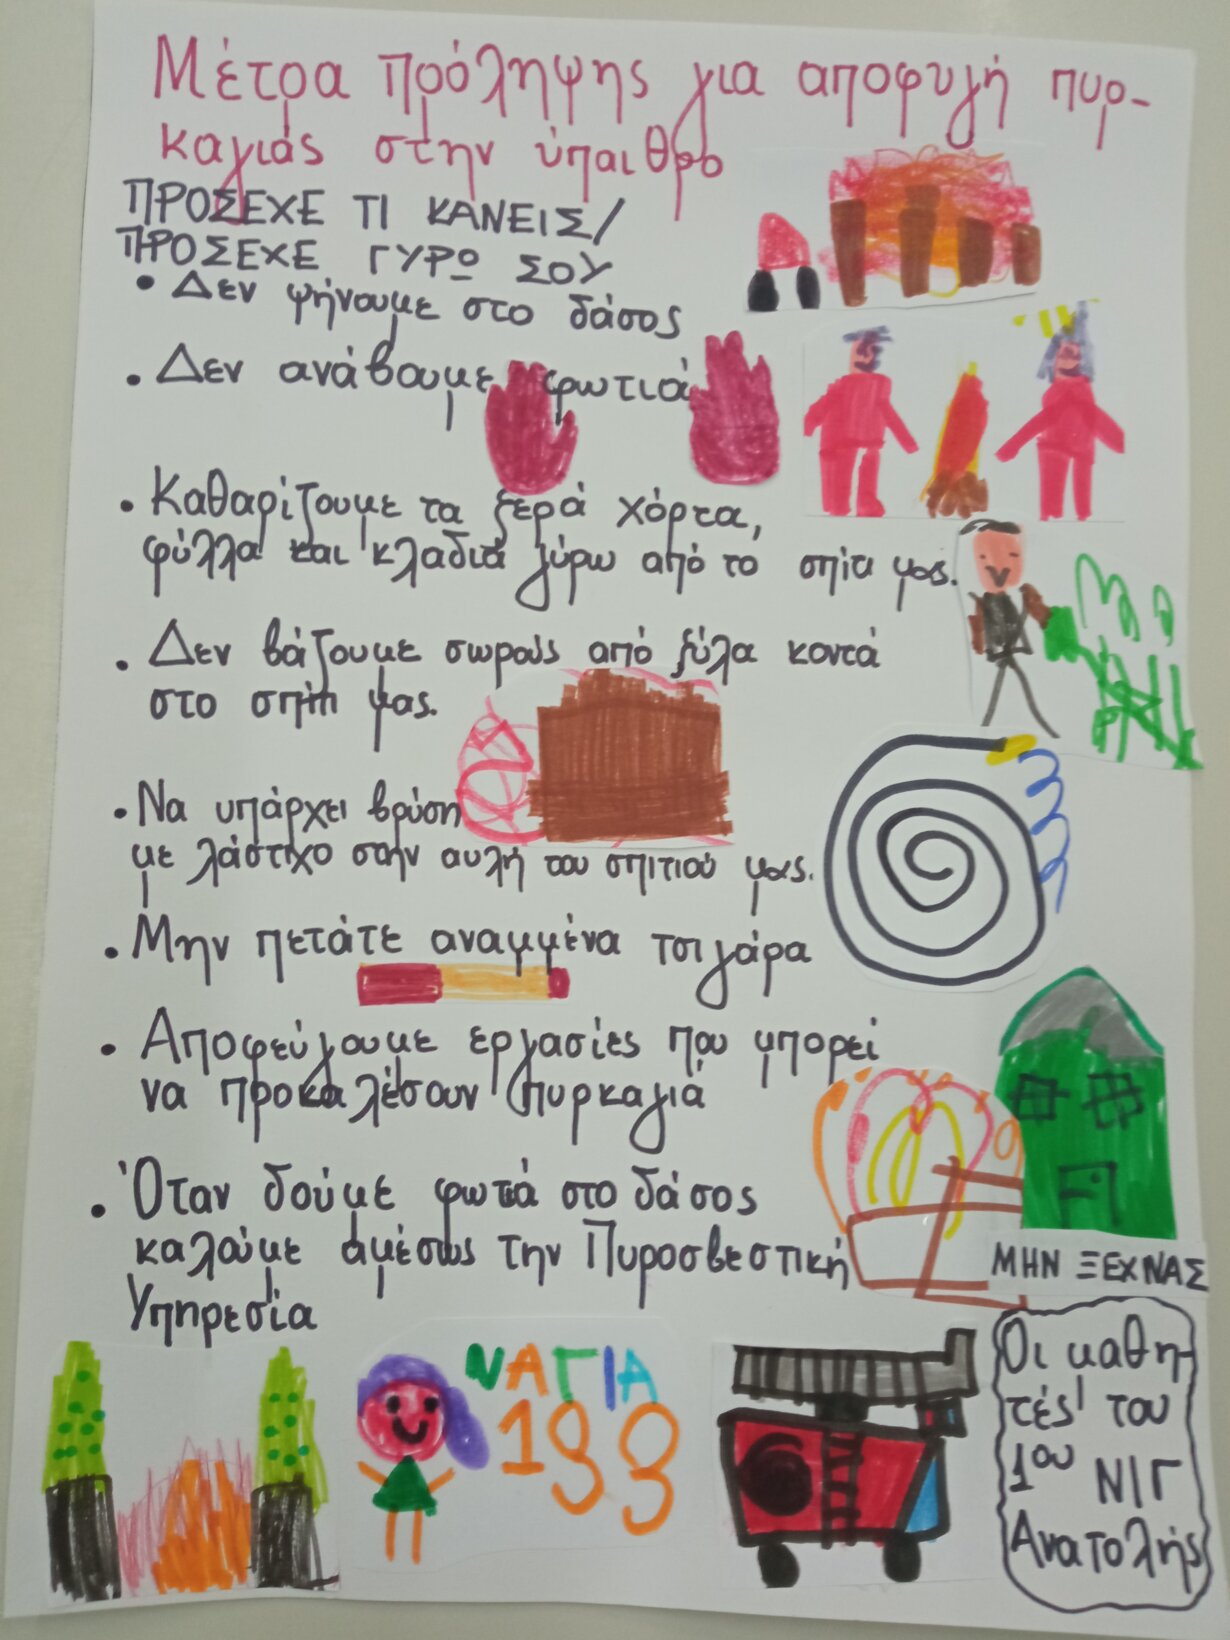 Μέτρα πρόληψης για αποφυγή πυρ-
καγιάς στην ύπαιθρο
ΠΡΟΣΕΧΕ ΤΙ ΚΑΝΕΙΣ/
ΠΡΟΣΕΧΕ ΓΥΡΩ ΣΟΥ
• Δεν ψήνουμε στο δάσος
• Δεν ανάβουμε φωτιά
• Καθαρίζουμε τα ξερά χόρτα,
φύλλα και κλαδιά γύρω από το σπίτι μας.
• Δεν βάζουμε σωρούς από ξύλα κοντά
στο σπίτι μας.
• Να υπάρχει βρύση
με λάστιχο στην αυλή του σπιτιού μας.
• Μην πετάτε αναμμένα τσιγάρα
• Αποφεύγουμε εργασίες που μπορεί
να προκαλέσουν πυρκαγιά
• Όταν δούμε φωτιά στο δάσος
καλούμε αμέσως την Πυροσβεστική
Υπηρεσία
ΜΗΝ ΞΕΧΝΑΣ
ΝΑΓΙΑ
199
Οι μαθη-
τές του
1ου Ν/Γ
Ανατολής